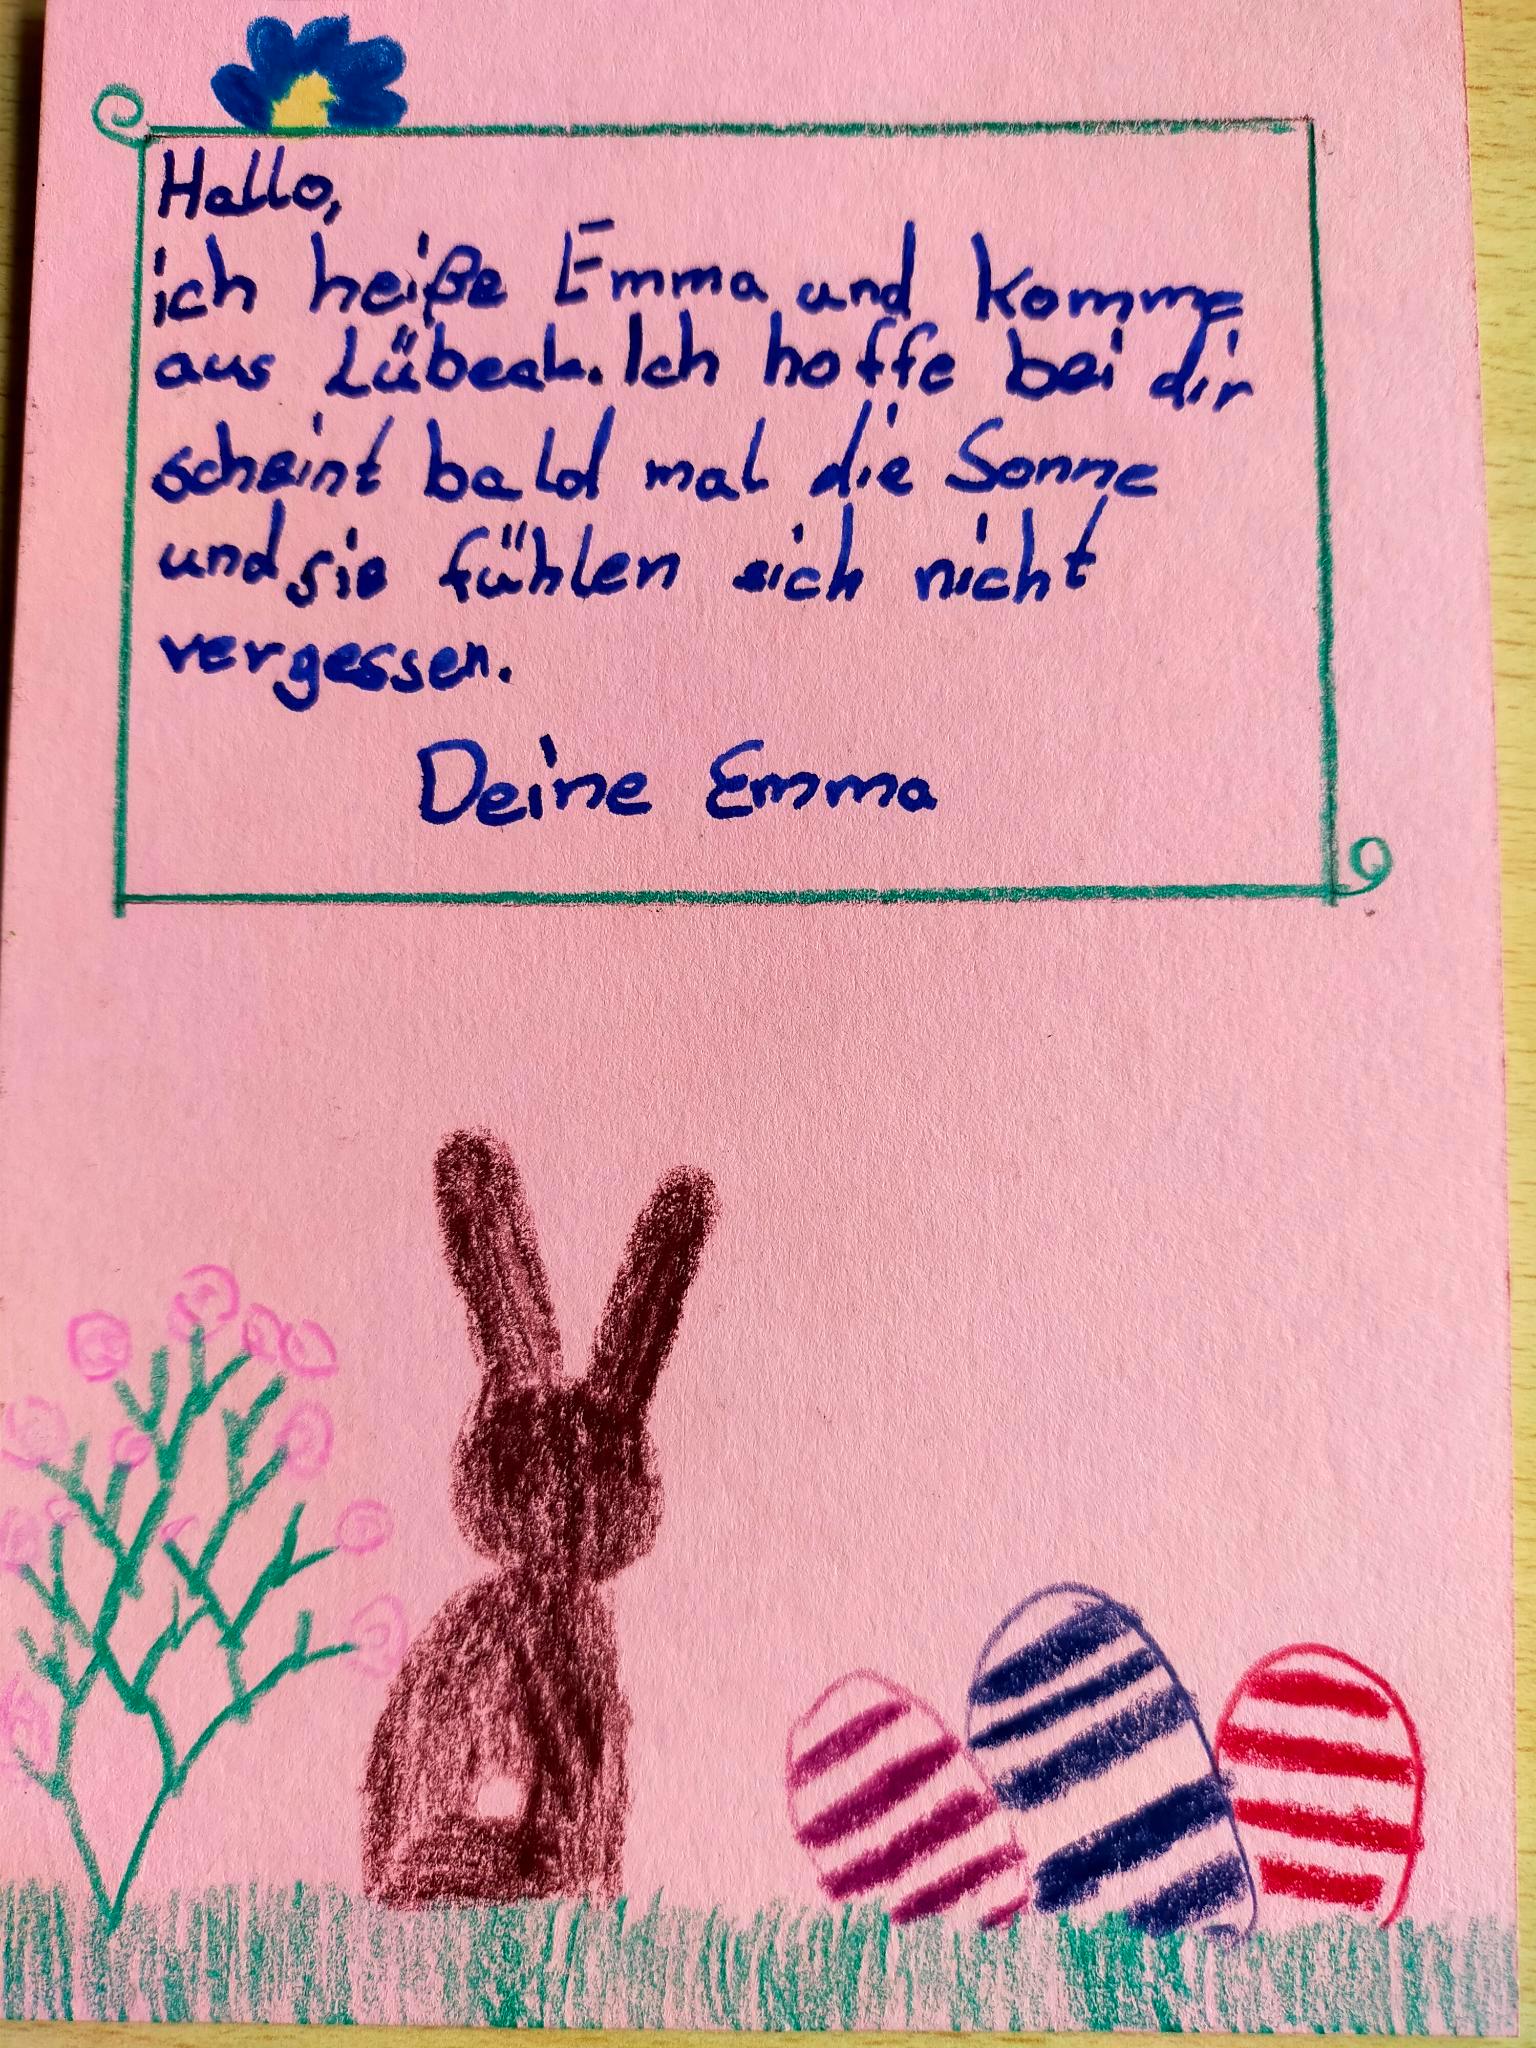 Hallo,
ich heiße Emma und komme
aus Lübeck. Ich hoffe bei dir
scheint bald mal die Sonne
und sie fühlen sich nicht
vergessen.
Deine Emma